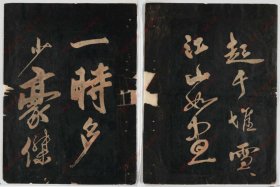 起千堆雪
江山如畫
一時多
少豪傑